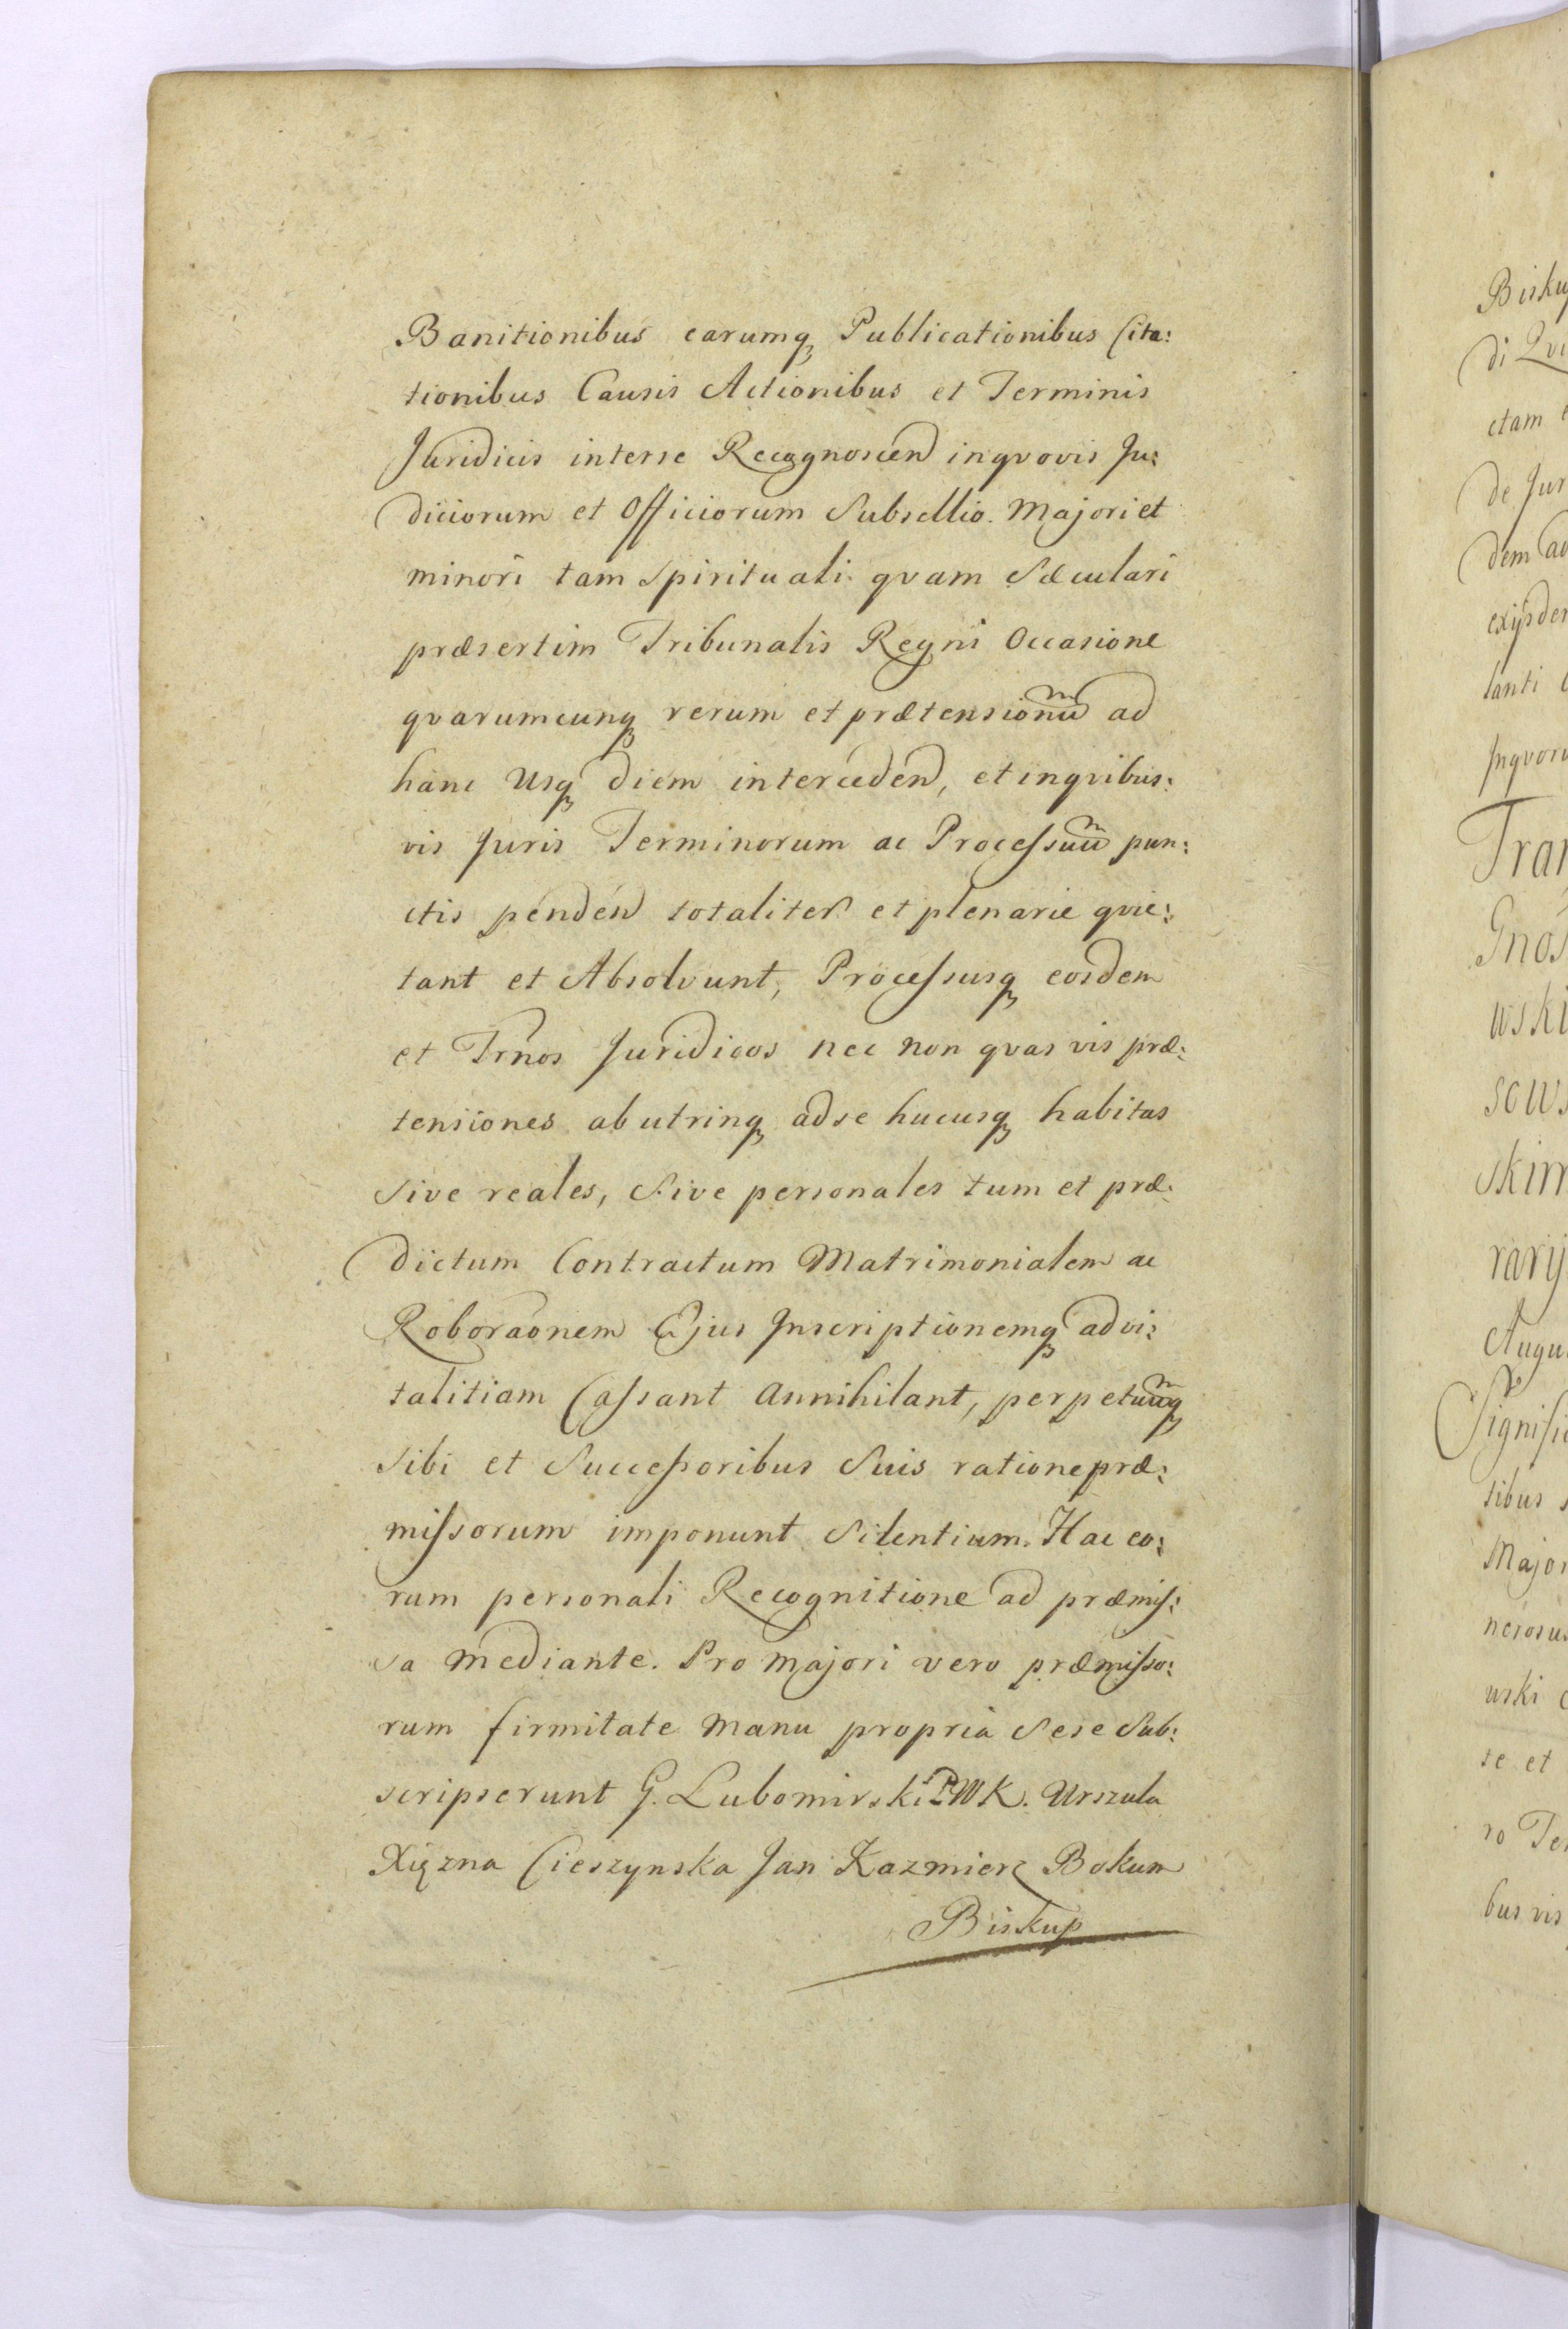 Banitionibus earumq₃ Publicationibus Cita:
tionibus Causis Actionibus et Terminis
Juridicis interse Recognoscen̄ inqvovis Ju:
diciorum et Officiorum Subsellio. Majori et
minori tam Spirituali qvam Sæculari
præsertim Tribunalis Regni Occasione
qvarumcunq₃ rerum et prætensionuū ad
hanc Usq₃ diem interceden̄, et inqvibus:
vis Juris Terminorum ac Processuū pun:
ctis penden̄ totaliter et plenarie qvie:
tant et Absolvunt, Processusq₃ eosdem
et Trn̄os Juridicos nec non qvas vis præ:
tensiones ab utrinq₃ ad se hucusq₃ habitas
Sive reales, Sive personales tum et præ:
dictum Contractum Matrimonialem ac
Roboraōnem Ejus Inscriptionemq₃ advi:
talitiam Cassant Annihilant, perpetuūq₃
Sibi et Successoribus Suis ratione præ:
missorum imponunt Silentium. Hac eo:
rum personali Recognitione ad præmis:
sa mediante. Pro majori vero præmisso:
rum firmitate Manu propria Sese Sub:
scripserunt G. Lubomirski PWK. Urszula
Xiężna Cieszynska Jan Kazmierz Bokum
Biskup
Bisku
di Qvi
ctam
de Jur
dem ad
exijsdem
lanti
Inqvoru
Tran
Gnos
wski
sows
skim
rarij
Augu
Signific
tibus
Major
nerosus
wski
se et
ro Ter
bus vis